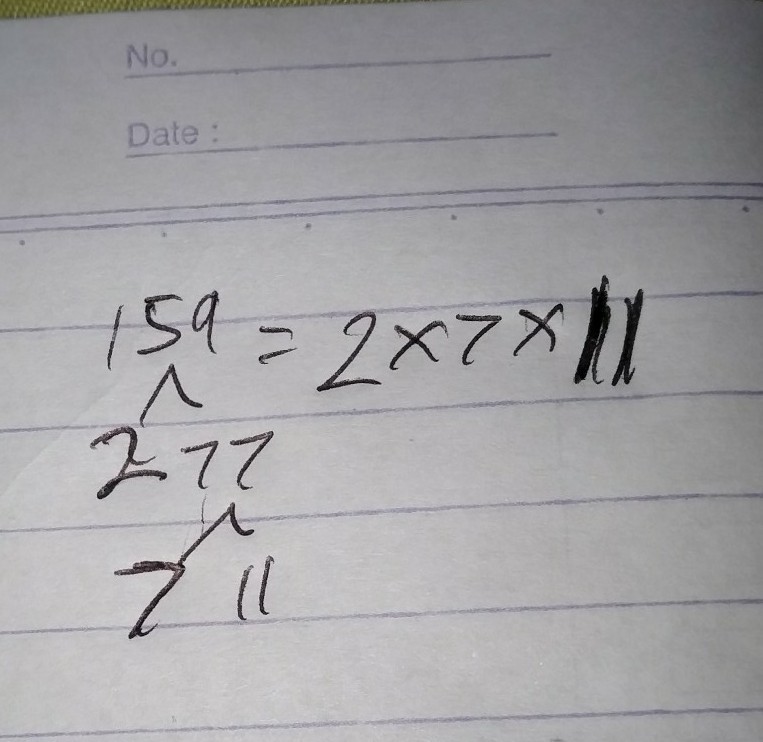 No.
Date :
159 = 2×7×11
2 77
7 11